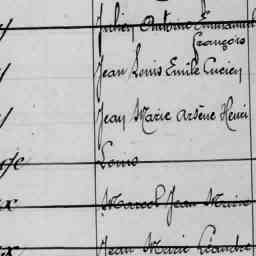 Julien Antoine Emmanuel
François
Jean Louis Emile Lucien
Jean Marie Arsène Henri
Louis
Marcel Jean Marie
Jean Marie Léandre